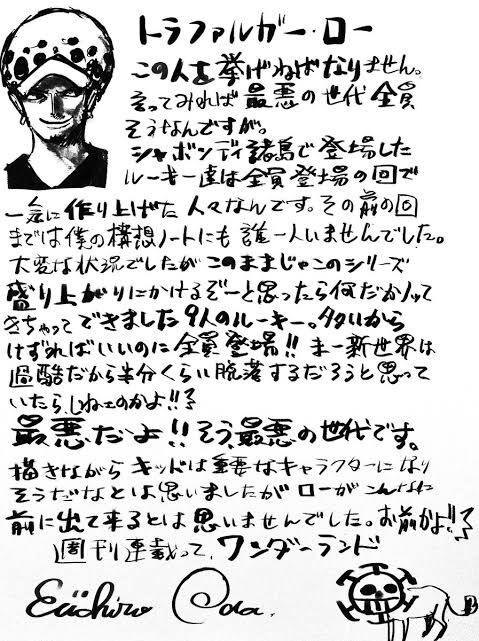 トラファルガー・ロー
この人を挙げねばなりません。
そってみれば最悪の世代全員
そうなんですが。
シャボンディ諸島で登場した
ルーキー達は全員登場の回で
一気に作り上げた人々なんです。その前の回
までは僕の構想ノートにも誰一人いませんでした。
大変な状況でしたがこのままじゃこのシリーズ
盛り上がりにかけるぞーと思ったら何だかノッて
きちゃってできました9人のルーキー。多いから
けずればいいのに全員登場!!まー新世界は
過酷だから半分くらい脱落するだろうと思って
いたら、しねェのかよ!!
最悪だよ!!そう、最悪の世代です。
描きながらキッドは重要なキャラクターになり
そうだなとは思いましたがローがこんなに
前に出て来るとは思いませんでした。お前かよ!!
週刊連載って、ワンダーランド
Eiichiro Oda.